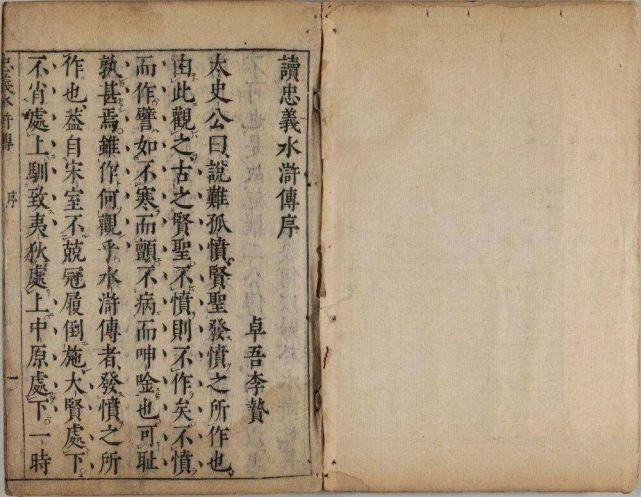 讀忠義水滸傳序
卓吾李贄
太史公曰說難孤憤賢聖發憤之所作也
由此觀之古之賢聖不憤則不作矣不憤
而作譬如不寒而顫不病而呻唫也可耻
孰甚焉雖作何觀乎水滸傳者發憤之所
作也葢自宋室不兢冠履倒施大賢處下
不肖處上馴致夷狄處上中原處下一時
忠義水滸傳 序 一